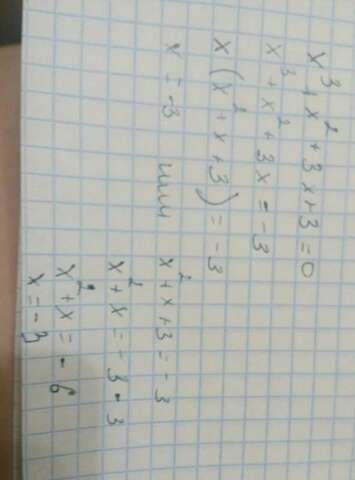 x³ + x² + 3x + 3 = 0
x³ + x² + 3x = -3
x(x² + x + 3) = -3
x = -3 или x² + x + 3 = -3
x² + x = -3 - 3
x² + x = -6
x = -3